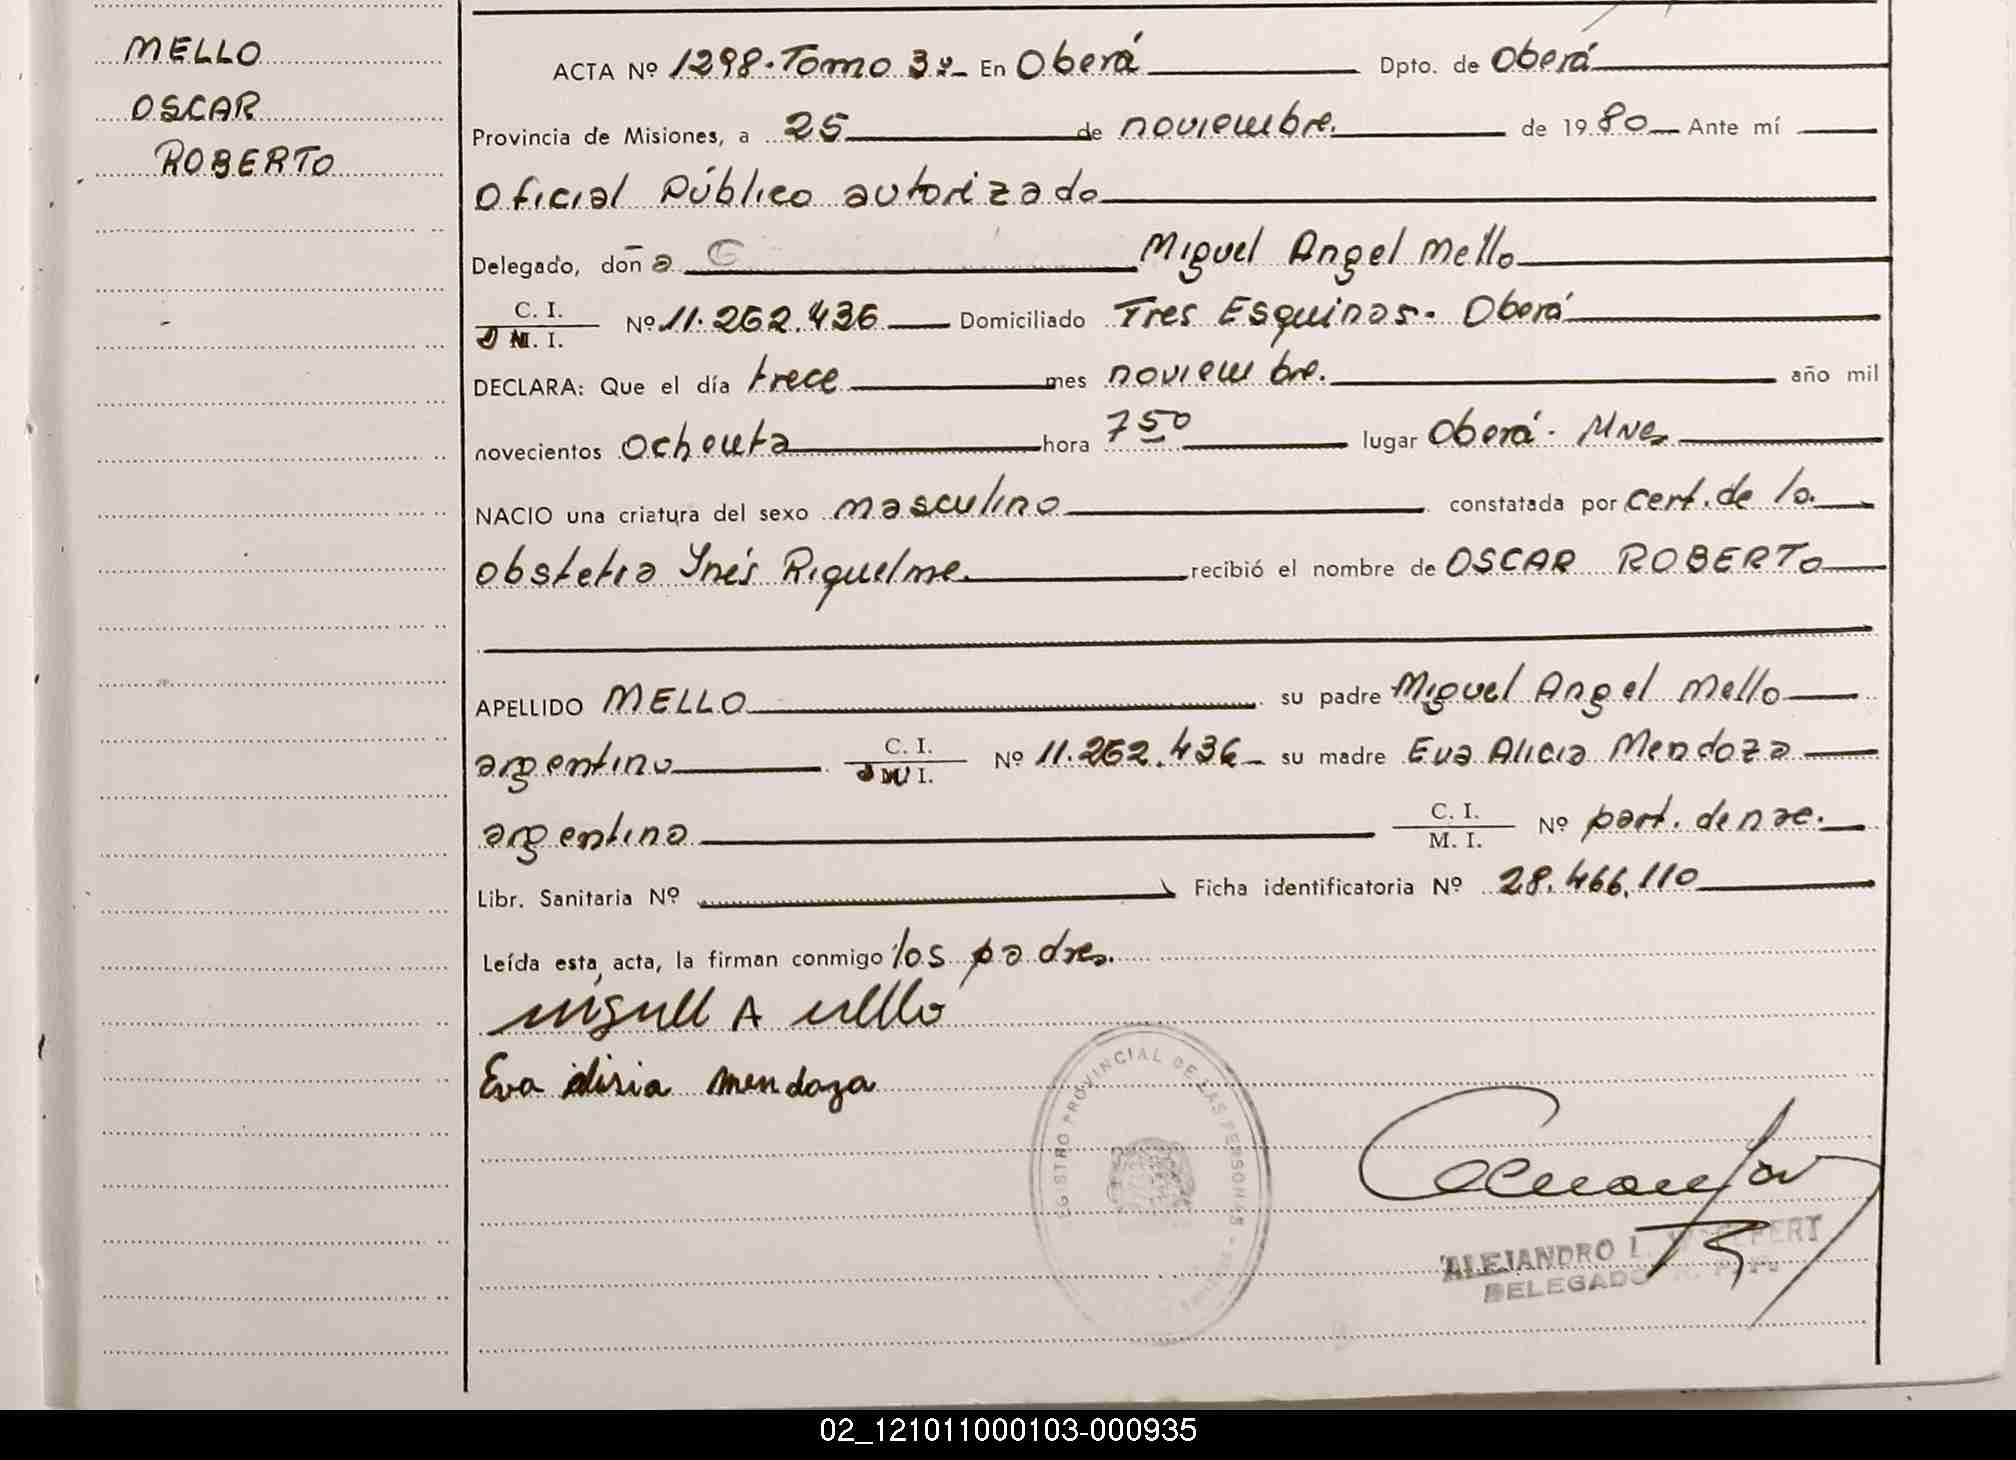 MELLO
OSCAR
ROBERTO
ACTA Nº 1298. Tomo 3º En Oberá Dpto. de Oberá
Provincia de Misiones, a 25 de noviembre. de 1980 Ante mí
Oficial Público autorizado
Delegado, don a Miguel Angel Mello
C. I.
Nº 11.262.436 Domiciliado Tres Esquinas. Oberá
D N. I.
DECLARA: Que el día trece mes noviembre. año mil
novecientos ochenta hora 7 50 lugar Oberá. Mnes
NACIO una criatura del sexo masculino constatada por cert. de la
obstetra Inés Riquelme. recibió el nombre de OSCAR ROBERTO
APELLIDO MELLO su padre Miguel Angel Mello
argentino C. I. Nº 11.262.436 su madre Eva Alicia Mendoza
D N I.
argentina C. I. Nº part. de nac.
M. I.
Libr. Sanitaria Nº Ficha identificatoria Nº 28.466.110
Leída esta acta, la firman conmigo los padres.
Miguel A Mello
Eva alisia mendoza
REGISTRO PROVINCIAL DE LAS PERSONAS
ALEJANDRO L.
DELEGADO
02_121011000103-000935